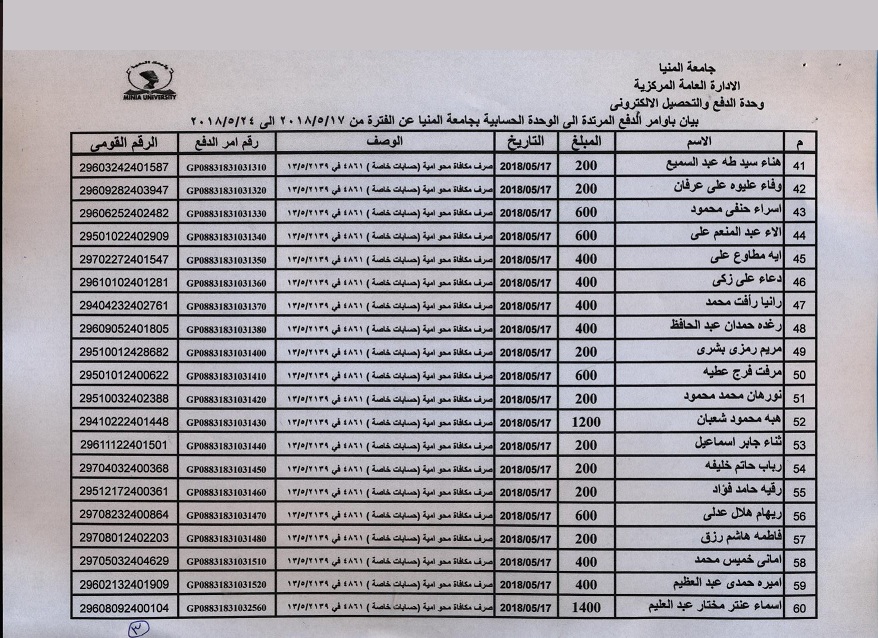 جامعة المنيا
MINIA UNIVERSITY
الادارة العامة المركزية
وحدة الدفع والتحصيل الالكترونى
بيان باوامر الدفع المرتدة الى الوحدة الحسابية بجامعة المنيا عن الفترة من ٢٠١٨/٥/١٧ الى ٢٠١٨/٥/٢٤
م الاسم المبلغ التاريخ الوصف رقم امر الدفع الرقم القومى
41 هناء سيد طه عبد السميع 200 2018/05/17 صرف مكافاة محو امية (حسابات خاصة ) ٤٨٦١ في ١٣/٥/٢١٣٩ GP08831831031310 29603242401587
42 وفاء عليوه على عرفان 200 2018/05/17 صرف مكافاة محو امية (حسابات خاصة ) ٤٨٦١ في ١٣/٥/٢١٣٩ GP08831831031320 29609282403947
43 اسراء حنفى محمود 600 2018/05/17 صرف مكافاة محو امية (حسابات خاصة ) ٤٨٦١ في ١٣/٥/٢١٣٩ GP08831831031330 29606252402482
44 الاء عبد المنعم على 600 2018/05/17 صرف مكافاة محو امية (حسابات خاصة ) ٤٨٦١ في ١٣/٥/٢١٣٩ GP08831831031340 29501022402909
45 ايه مطاوع على 400 2018/05/17 صرف مكافاة محو امية (حسابات خاصة ) ٤٨٦١ في ١٣/٥/٢١٣٩ GP08831831031350 29702272401547
46 دعاء على زكى 400 2018/05/17 صرف مكافاة محو امية (حسابات خاصة ) ٤٨٦١ في ١٣/٥/٢١٣٩ GP08831831031360 29610102401281
47 رانيا رأفت محمد 400 2018/05/17 صرف مكافاة محو امية (حسابات خاصة ) ٤٨٦١ في ١٣/٥/٢١٣٩ GP08831831031370 29404232402761
48 رغده حمدان عبد الحافظ 400 2018/05/17 صرف مكافاة محو امية (حسابات خاصة ) ٤٨٦١ في ١٣/٥/٢١٣٩ GP08831831031380 29609052401805
49 مريم رمزى بشرى 200 2018/05/17 صرف مكافاة محو امية (حسابات خاصة ) ٤٨٦١ في ١٣/٥/٢١٣٩ GP08831831031400 29510012428682
50 مرفت فرج عطيه 600 2018/05/17 صرف مكافاة محو امية (حسابات خاصة ) ٤٨٦١ في ١٣/٥/٢١٣٩ GP08831831031410 29501012400622
51 نورهان محمد محمود 200 2018/05/17 صرف مكافاة محو امية (حسابات خاصة ) ٤٨٦١ في ١٣/٥/٢١٣٩ GP08831831031420 29510032402388
52 هبه محمود شعبان 1200 2018/05/17 صرف مكافاة محو امية (حسابات خاصة ) ٤٨٦١ في ١٣/٥/٢١٣٩ GP08831831031430 29410222401448
53 ثناء جابر اسماعيل 200 2018/05/17 صرف مكافاة محو امية (حسابات خاصة ) ٤٨٦١ في ١٣/٥/٢١٣٩ GP08831831031440 29611122401501
54 رباب حاتم خليفه 200 2018/05/17 صرف مكافاة محو امية (حسابات خاصة ) ٤٨٦١ في ١٣/٥/٢١٣٩ GP08831831031450 29704032400368
55 رقيه حامد فؤاد 200 2018/05/17 صرف مكافاة محو امية (حسابات خاصة ) ٤٨٦١ في ١٣/٥/٢١٣٩ GP08831831031460 29512172400361
56 ريهام هلال عدلى 600 2018/05/17 صرف مكافاة محو امية (حسابات خاصة ) ٤٨٦١ في ١٣/٥/٢١٣٩ GP08831831031470 29708232400864
57 فاطمه هاشم رزق 200 2018/05/17 صرف مكافاة محو امية (حسابات خاصة ) ٤٨٦١ في ١٣/٥/٢١٣٩ GP08831831031480 29708012402203
58 امانى خميس محمد 400 2018/05/17 صرف مكافاة محو امية (حسابات خاصة ) ٤٨٦١ في ١٣/٥/٢١٣٩ GP08831831031510 29705032404629
59 اميره حمدى عبد العظيم 400 2018/05/17 صرف مكافاة محو امية (حسابات خاصة ) ٤٨٦١ في ١٣/٥/٢١٣٩ GP08831831031520 29602132401909
60 اسماء عنتر مختار عبد العليم 1400 2018/05/17 صرف مكافاة محو امية (حسابات خاصة ) ٤٨٦١ في ١٣/٥/٢١٣٩ GP08831831032560 29608092400104
٣